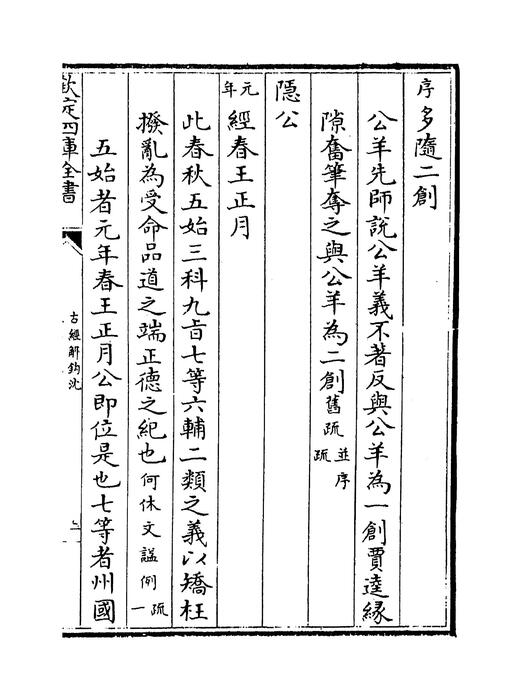 序多隨二創
公羊先師說公羊義不著反與公羊為一創賈逵緣
隙奮筆奪之與公羊為二創舊疏並序疏
隱公
元年經春王正月
此春秋五始三科九旨七等六輔二類之義以矯枉
撥亂為受命品道之端正德之紀也何休文諡例疏一
五始者元年春王正月公即位是也七等者州國
欽定四庫全書
古經解鉤沈